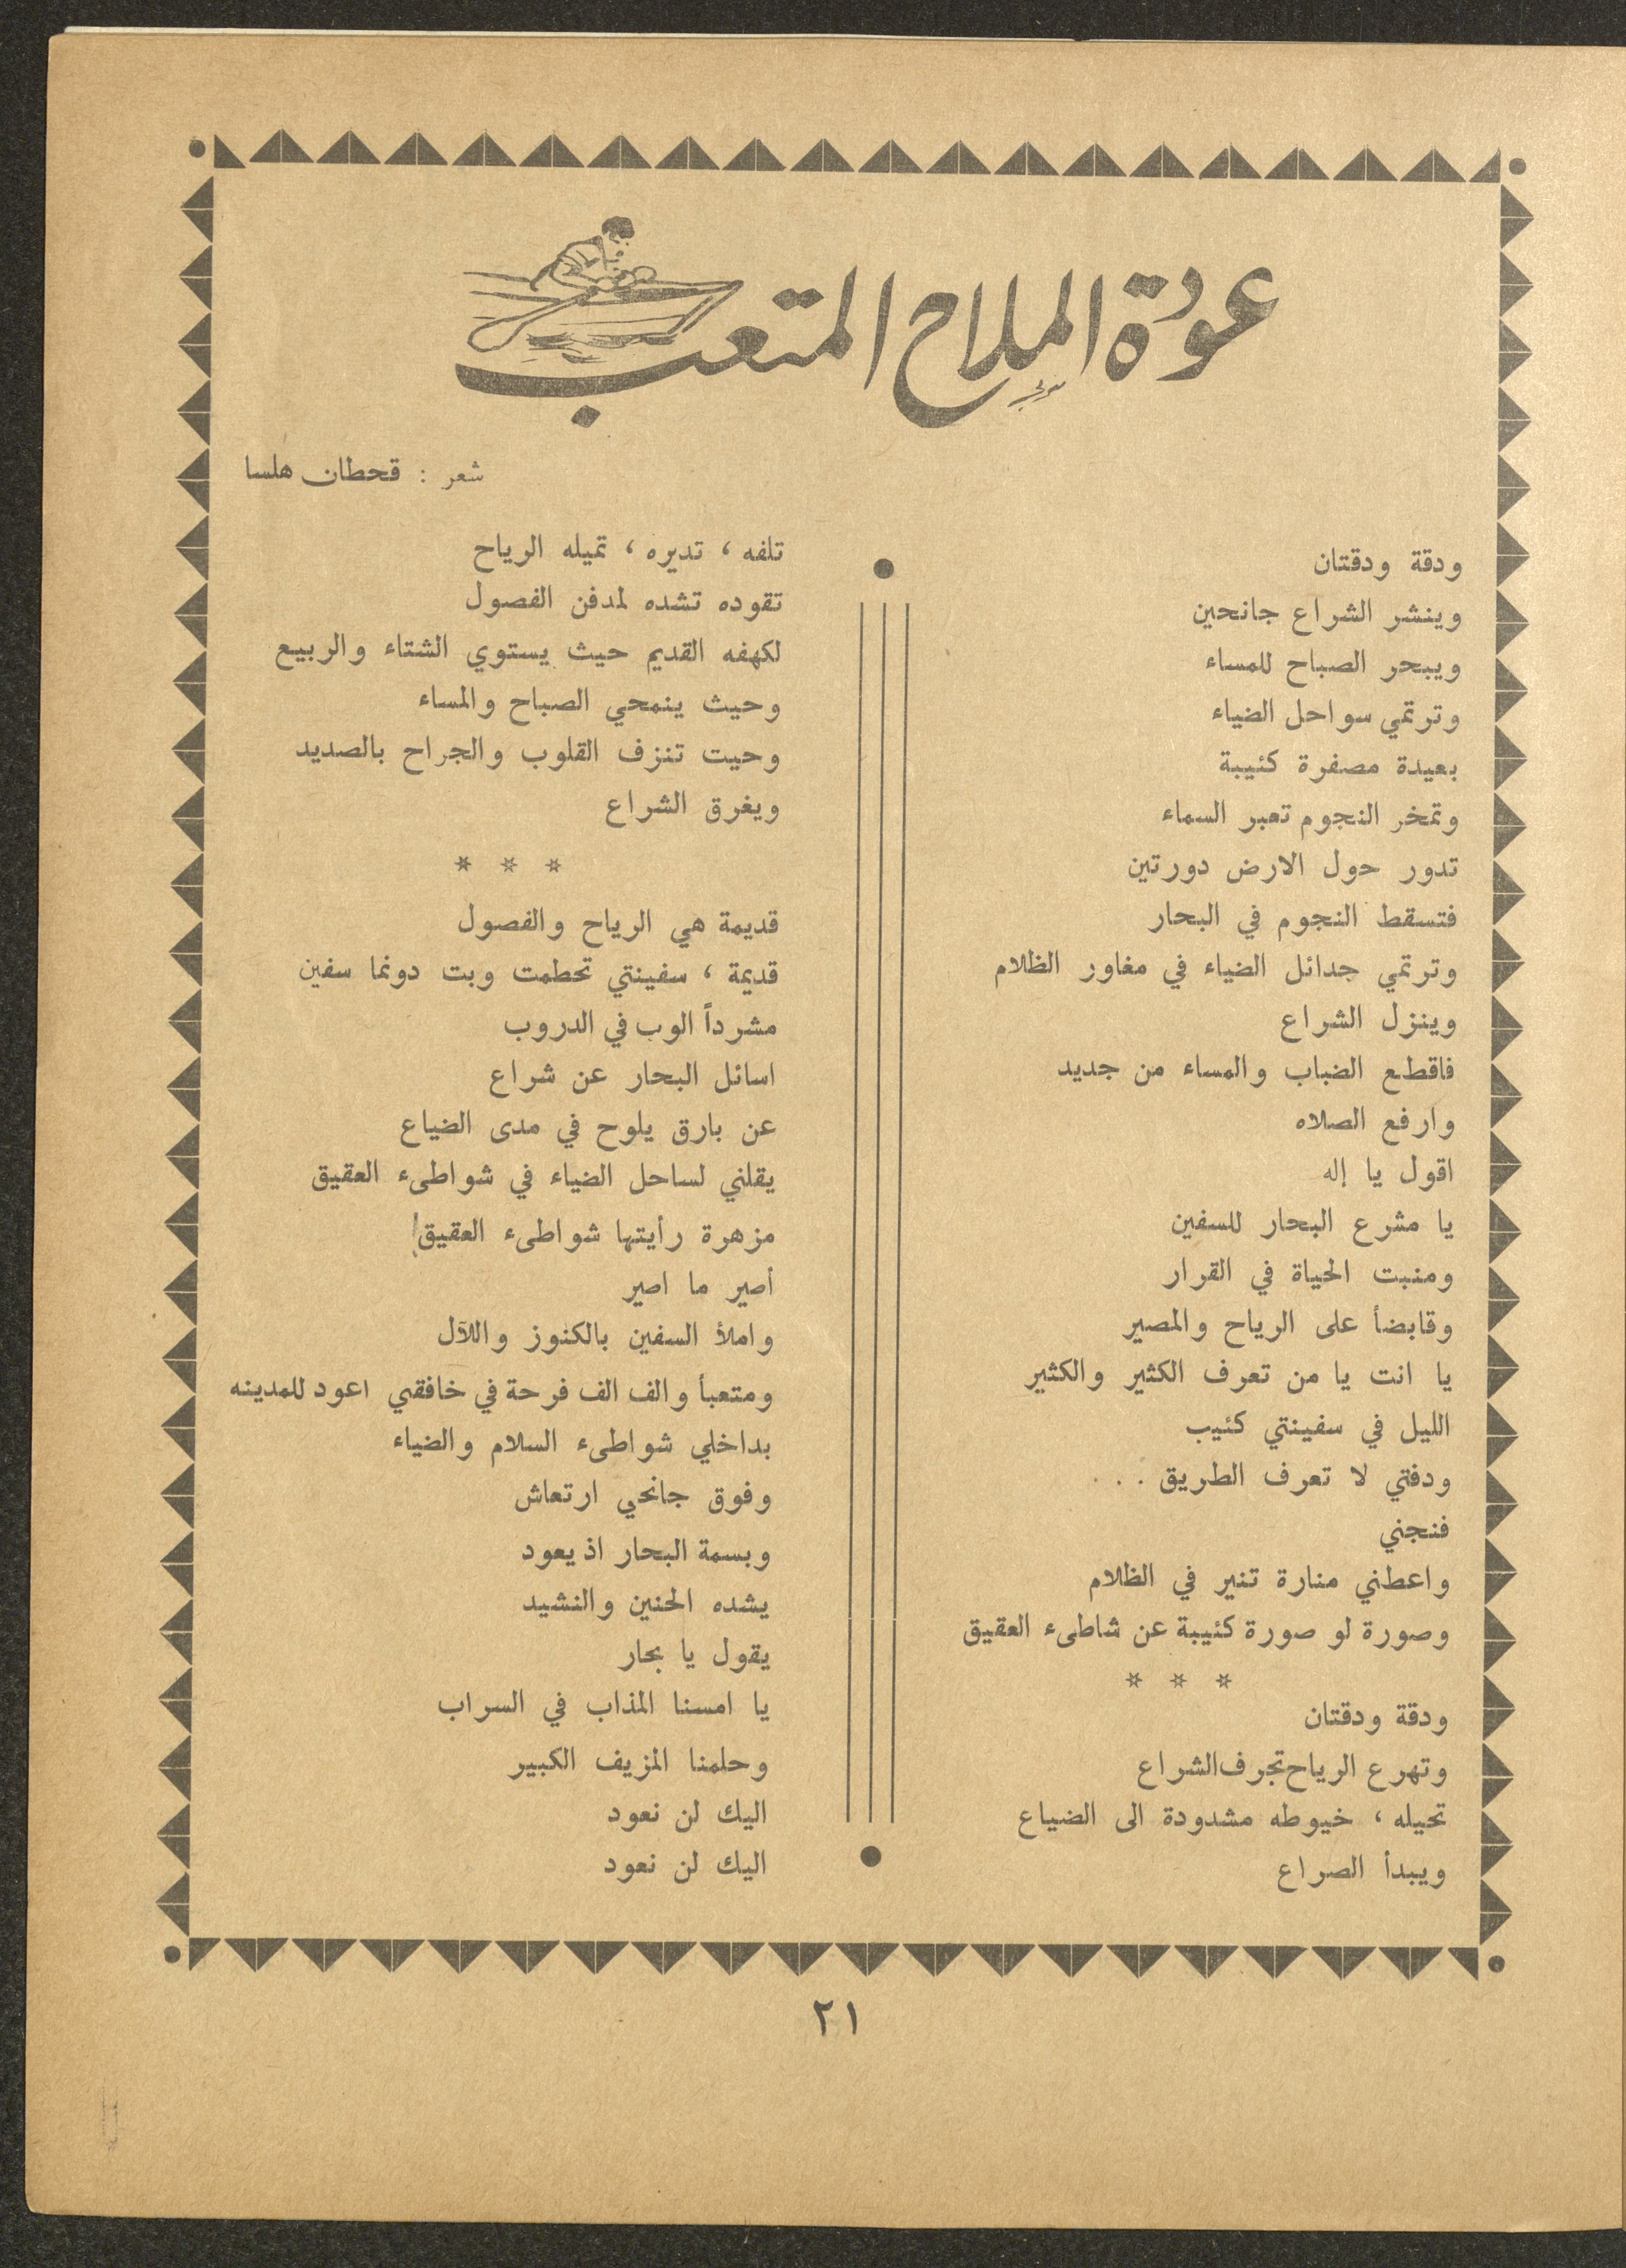 عودة الملاح المتعب
شعر : قحطان هلسا
ودقة ودقتان
وينشر الشراع جانحين
ويبحر الصباح للمساء
وترتمي سواحل الضياء
بعيدة مصفرة كئيبة
وتمخر النجوم تعبر السماء
تدور حول الارض دورتين
فتسقط النجوم في البحار
وترتمي جدائل الضياء في مغاور الظلام
وينزل الشراع
فاقطع الضباب والمساء من جديد
وارفع الصلاه
اقول يا إله
يا مشرع البحار للسفين
ومنبت الحياة في القرار
وقابضاً على الرياح والمصير
يا انت يا من تعرف الكثير والكثير
الليل في سفينتي كئيب
ودفتي لا تعرف الطريق . . .
فنجني
واعطني منارة تنير في الظلام
وصورة لو صورة كئيبة عن شاطىء العقيق
* * *
ودقة ودقتان
وتهرع الرياح تجرف الشراع
تحيله ، خيوطه مشدودة الى الضياع
ويبدأ الصراع
تلفه ، تديره ، تميله الرياح
تقوده تشده لمدفن الفصول
لكهفه القديم حيث يستوي الشتاء والربيع
وحيث ينمحي الصباح والمساء
وحيت تنزف القلوب والجراح بالصديد
ويغرق الشراع
* * *
قديمة هي الرياح والفصول
قديمة ، سفينتي تحطمت وبت دونما سفين
مشرداً الوب في الدروب
اسائل البحار عن شراع
عن بارق يلوح في مدى الضياع
يقلني لساحل الضياء في شواطىء العقيق
مزهرة رأيتها شواطىء العقيق!
أصير ما اصير
واملأ السفين بالكنوز واللآل
ومتعباً والف الف فرحة في خافقي اعود للمدينه
بداخلي شواطىء السلام والضياء
وفوق جانحي ارتعاش
وبسمة البحار اذ يعود
يشده الحنين والنشيد
يقول يا بحار
يا امسنا المذاب في السراب
وحلمنا المزيف الكبير
اليك لن نعود
اليك لن نعود
٢١